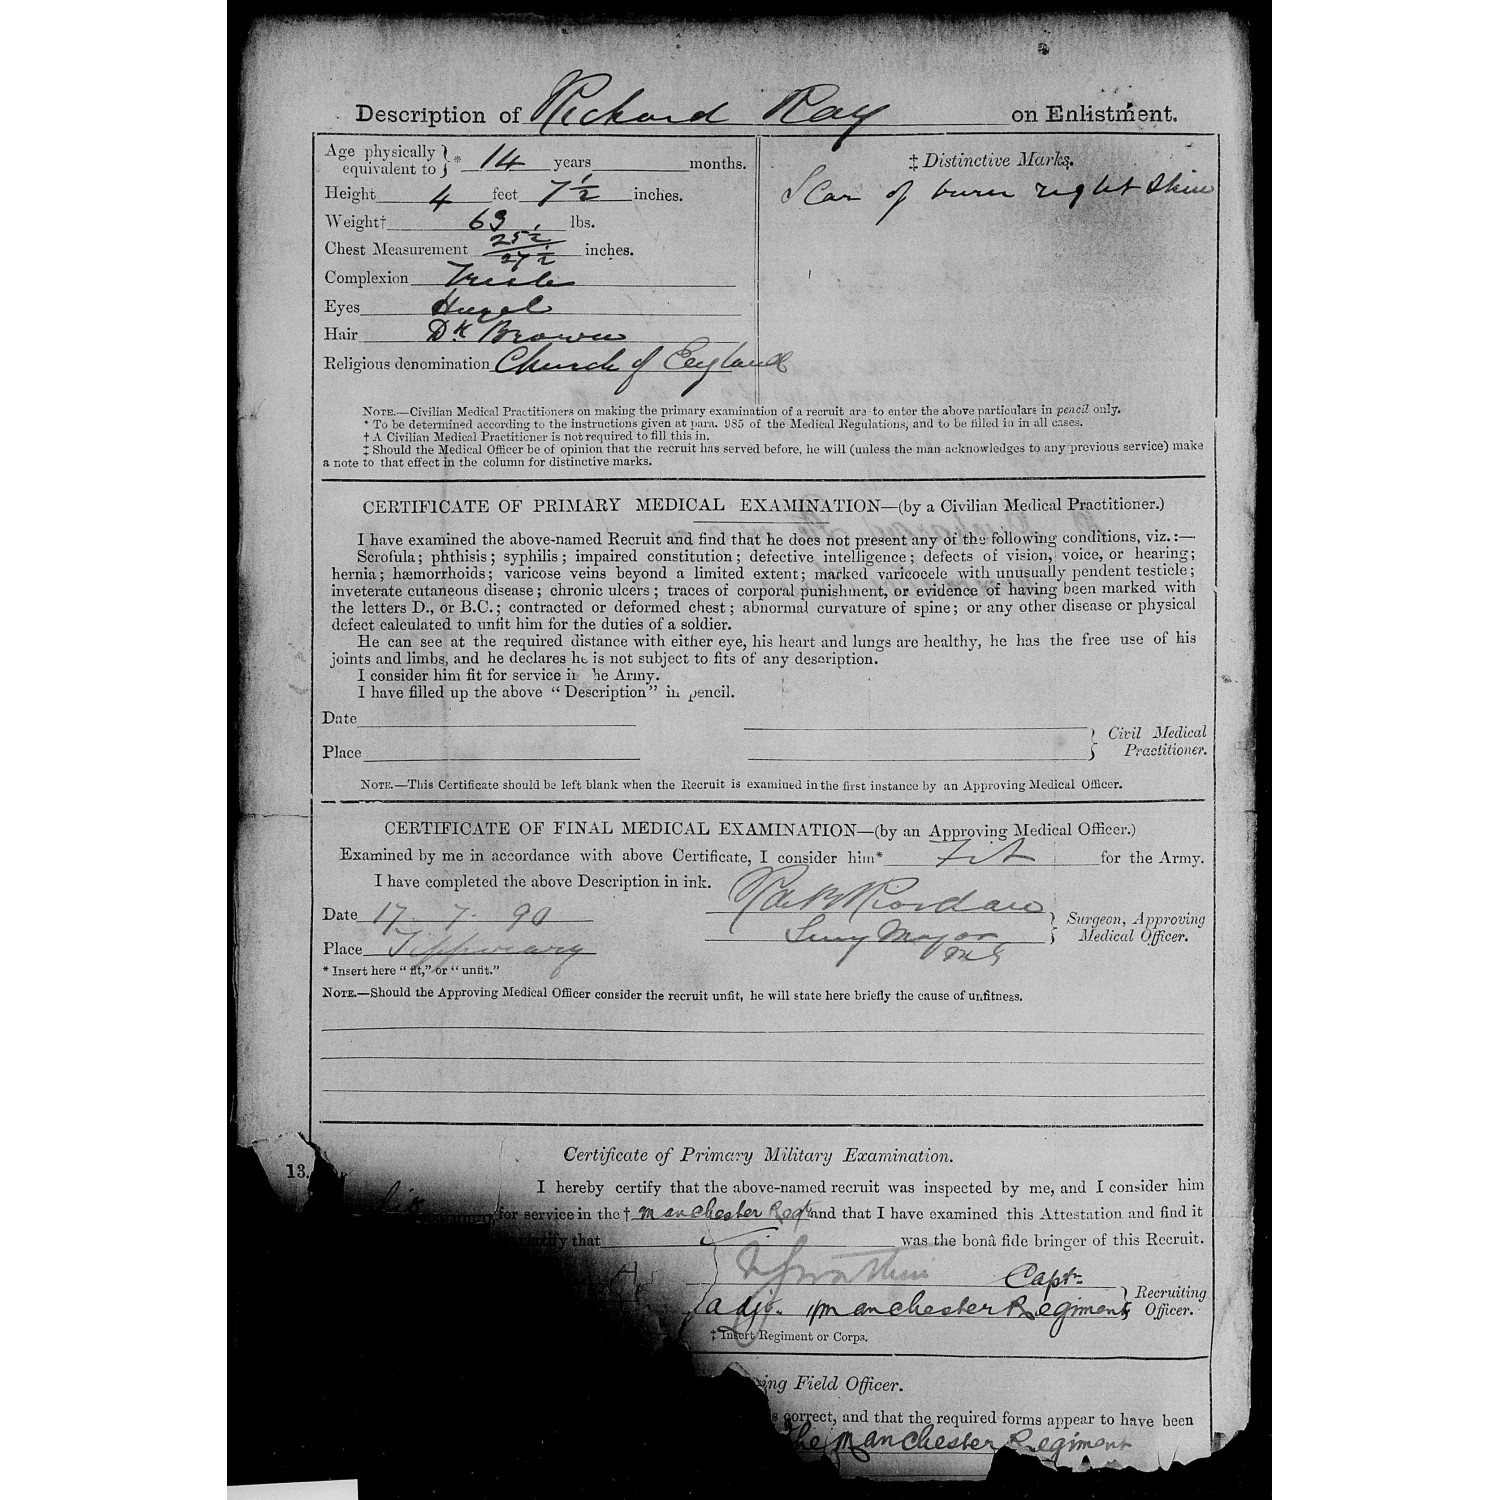 Description of Richard Ray on Enlistment.
Age physically equivalent to * 14 years months.
Height 4 feet 7 1/2 inches.
Weight† 63 lbs.
Chest Measurement 25 1/2 / 27 1/2 inches.
Complexion Fresh
Eyes Hazel
Hair Dk Brown
Religious denomination Church of England
‡ Distinctive Marks.
Scar of burn right shin
NOTE.—Civilian Medical Practitioners on making the primary examination of a recruit are to enter the above particulars in pencil only.
* To be determined according to the instructions given at para. 985 of the Medical Regulations, and to be filled in in all cases.
† A Civilian Medical Practitioner is not required to fill this in.
‡ Should the Medical Officer be of opinion that the recruit has served before, he will (unless the man acknowledges to any previous service) make
a note to that effect in the column for distinctive marks.
CERTIFICATE OF PRIMARY MEDICAL EXAMINATION—(by a Civilian Medical Practitioner.)
I have examined the above-named Recruit and find that he does not present any of the following conditions, viz.:—
Scrofula; phthisis; syphilis; impaired constitution; defective intelligence; defects of vision, voice, or hearing;
hernia; hæmorrhoids; varicose veins beyond a limited extent; marked varicocele with unusually pendent testicle;
inveterate cutaneous disease; chronic ulcers; traces of corporal punishment, or evidence of having been marked with
the letters D., or B.C.; contracted or deformed chest; abnormal curvature of spine; or any other disease or physical
defect calculated to unfit him for the duties of a soldier.
He can see at the required distance with either eye, his heart and lungs are healthy, he has the free use of his
joints and limbs, and he declares he is not subject to fits of any description.
I consider him fit for service in he Army.
I have filled up the above "Description" in pencil.
Date
Place
Civil Medical Practitioner.
NOTE.—This Certificate should be left blank when the Recruit is examined in the first instance by an Approving Medical Officer.
CERTIFICATE OF FINAL MEDICAL EXAMINATION—(by an Approving Medical Officer.)
Examined by me in accordance with above Certificate, I consider him* Fit for the Army.
I have completed the above Description in ink.
Date 17. 7. 90
Place Tipperary
Riordan
Surg Major
MS
Surgeon, Approving Medical Officer.
* Insert here "fit," or "unfit."
NOTE.—Should the Approving Medical Officer consider the recruit unfit, he will state here briefly the cause of unfitness.
13.
Certificate of Primary Military Examination.
I hereby certify that the above-named recruit was inspected by me, and I consider him
for service in the † Manchester Regt and that I have examined this Attestation and find it
that was the bonâ fide bringer of this Recruit.
Capt.
Adjt. Manchester Regiment
Recruiting Officer.
‡ Insert Regiment or Corps.
ing Field Officer.
s correct, and that the required forms appear to have been
The Manchester Regiment